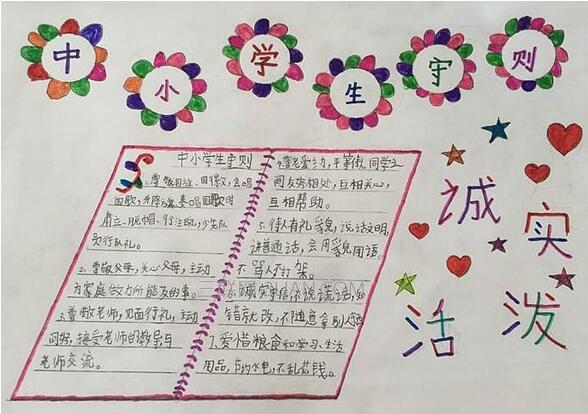 中小学生守则
中小学生守则
1.尊敬国旗、国徽,会唱
国歌,升降旗、奏唱国歌时
肃立、脱帽、行注目礼,少先队
员行队礼。
2.尊敬父母,关心父母,主动
为家庭做力所能及的事。
3.尊敬老师,见面行礼,主动
问好,接受老师的教导与
老师交流。
4.尊老爱幼,平等待人,同学之
间友好相处,互相关心,
互相帮助。
5.待人有礼貌,说话文明,
讲普通话,会用礼貌用语。
不骂人不打架。
6.诚实守信不说谎话,知
错就改,不随意拿别人东西
7.爱惜粮食和学习、生活
用品,节约水电,不乱花钱。
诚实
活泼